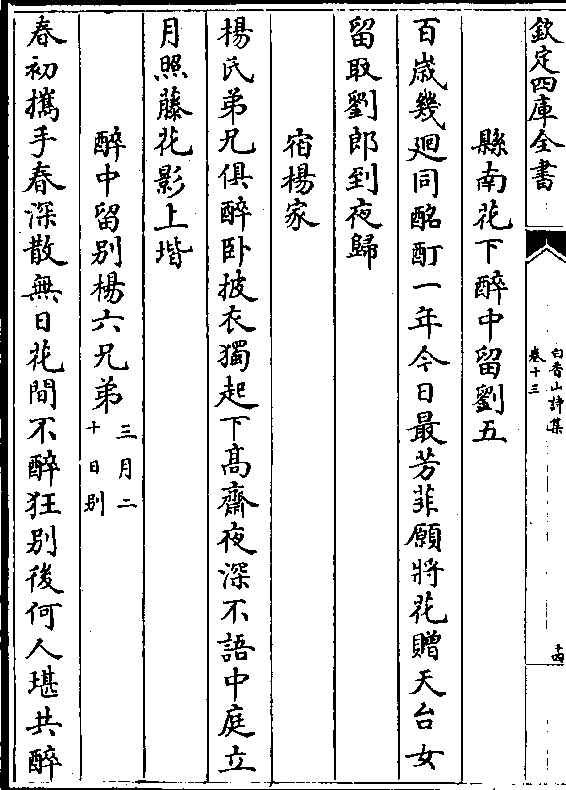 欽定四庫全書
白香山詩集
卷十三
十四
縣南花下醉中留劉五
百歲幾廻同酩酊一年今日最芳菲願將花贈天台女
留取劉郎到夜歸
宿楊家
楊氏弟兄俱醉卧披衣獨起下髙齋夜深不語中庭立
月照藤花影上堦
醉中留别楊六兄弟三月二十日别
春初攜手春深散無日花間不醉狂别後何人堪共醉